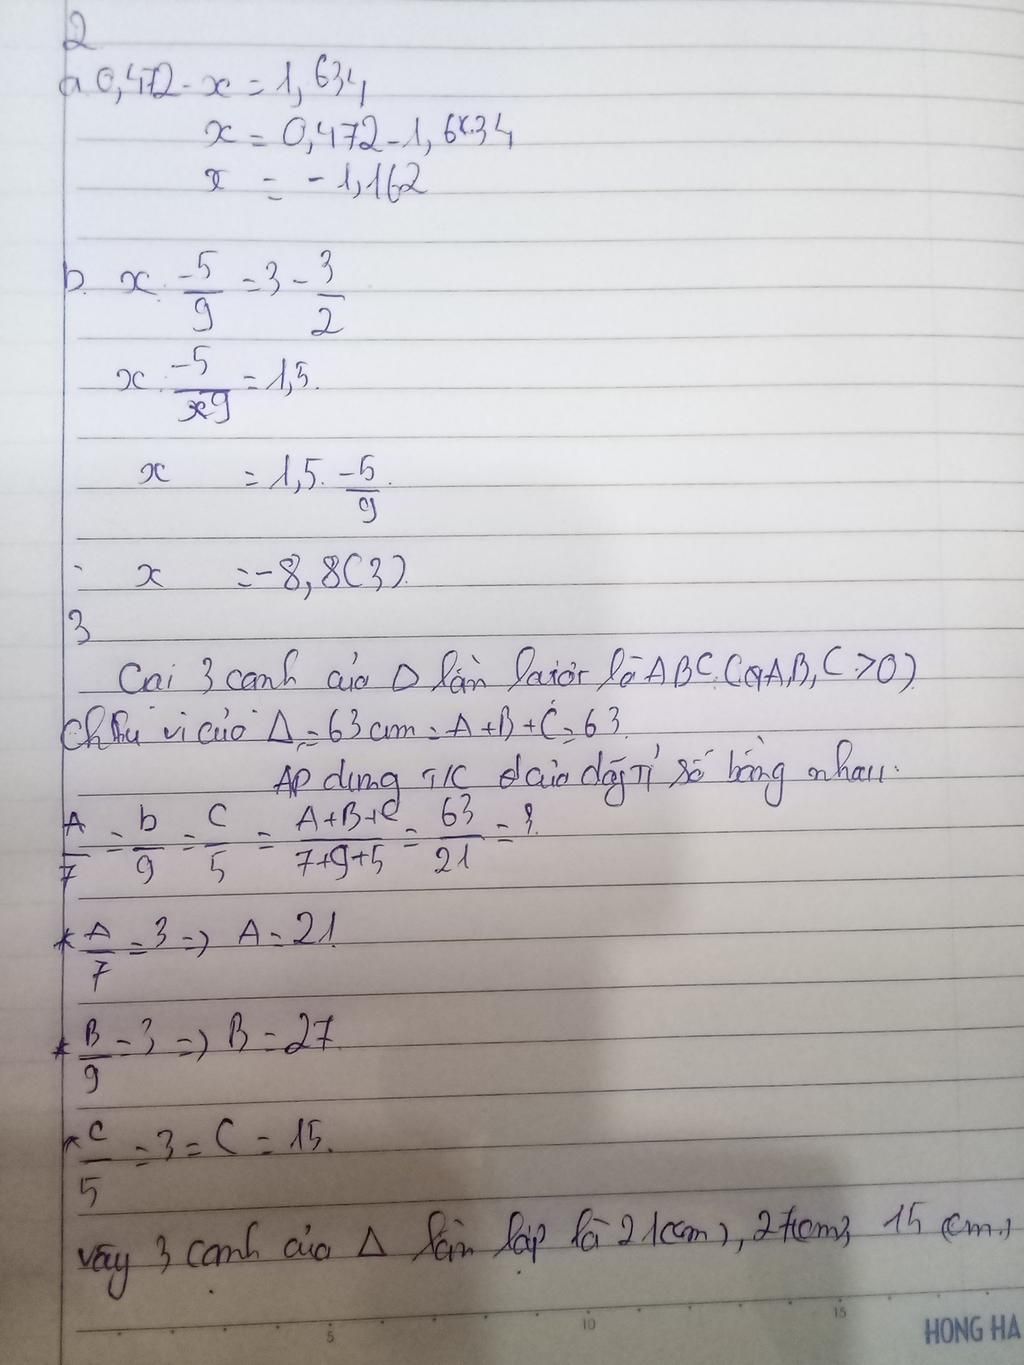 2
a. 0,472 - x = 1,634
x = 0,472 - 1,634
x = -1,162
b. x : -5/9 = 3 - 3/2
x : -5/9 = 1,5.
x = 1,5. -5/9.
x = -8,8(3).
3
Gọi 3 canh của Δ lần lượt là A B C. ( A, B, C > 0)
Chu vi của Δ = 63 cm = A + B + C = 63.
Áp dụng T/C của dãy tỉ số bằng nhau:
A/7 = b/9 = C/5 = A+B+C/7+9+5 = 63/21 = 3.
* A/7 = 3 => A = 21.
* B/9 = 3 => B = 27
* C/5 = 3 = C = 15.
vậy 3 canh của Δ lần lượt là 21(cm), 27(cm), 15 (cm)
5 10 15
HONG HA